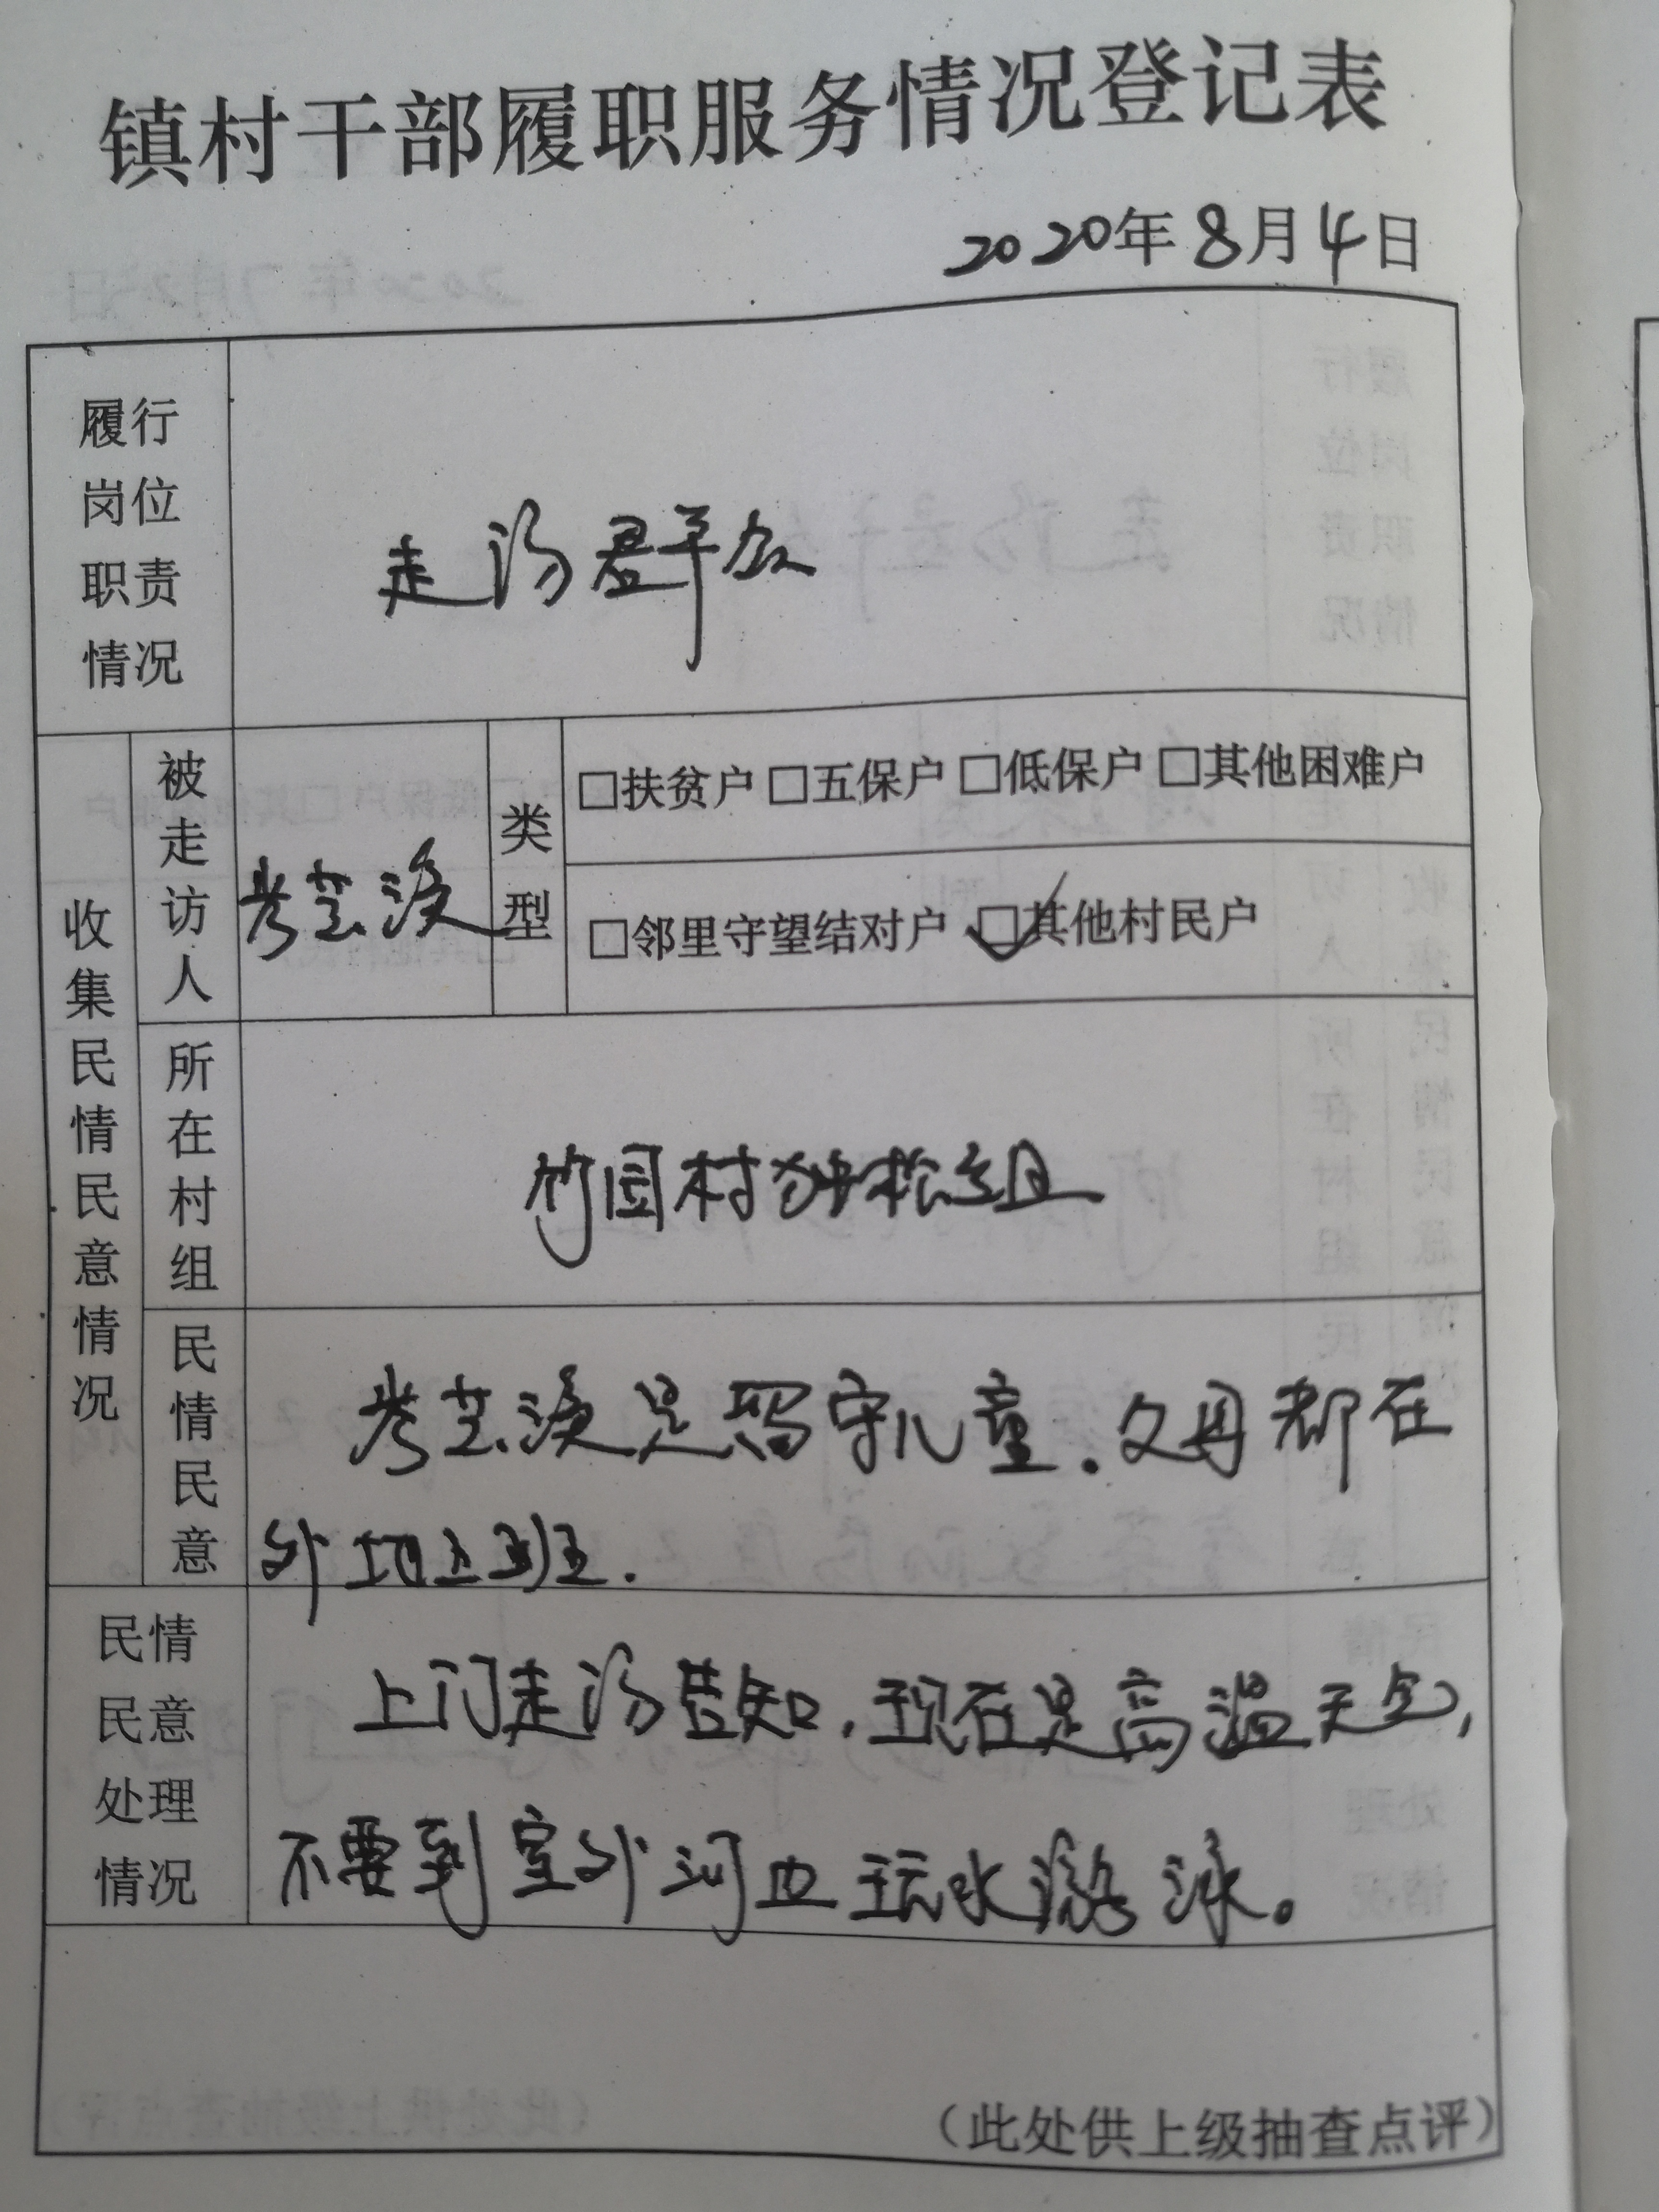 镇村干部履职服务情况登记表
2020年8月4日
履行
岗位
职责
情况
走访群众
收集民情民意情况
被走访人
类型
□扶贫户 □五保户 □低保户 □其他困难户
□邻里守望结对户 ☑其他村民户
所在村组
竹园村独松组
民情民意
是留守儿童.父母都在
外地上班.
民情
民意
处理
情况
上门走访告知,现在是高温天气,
不要到室外河边玩水游泳。
(此处供上级抽查点评)